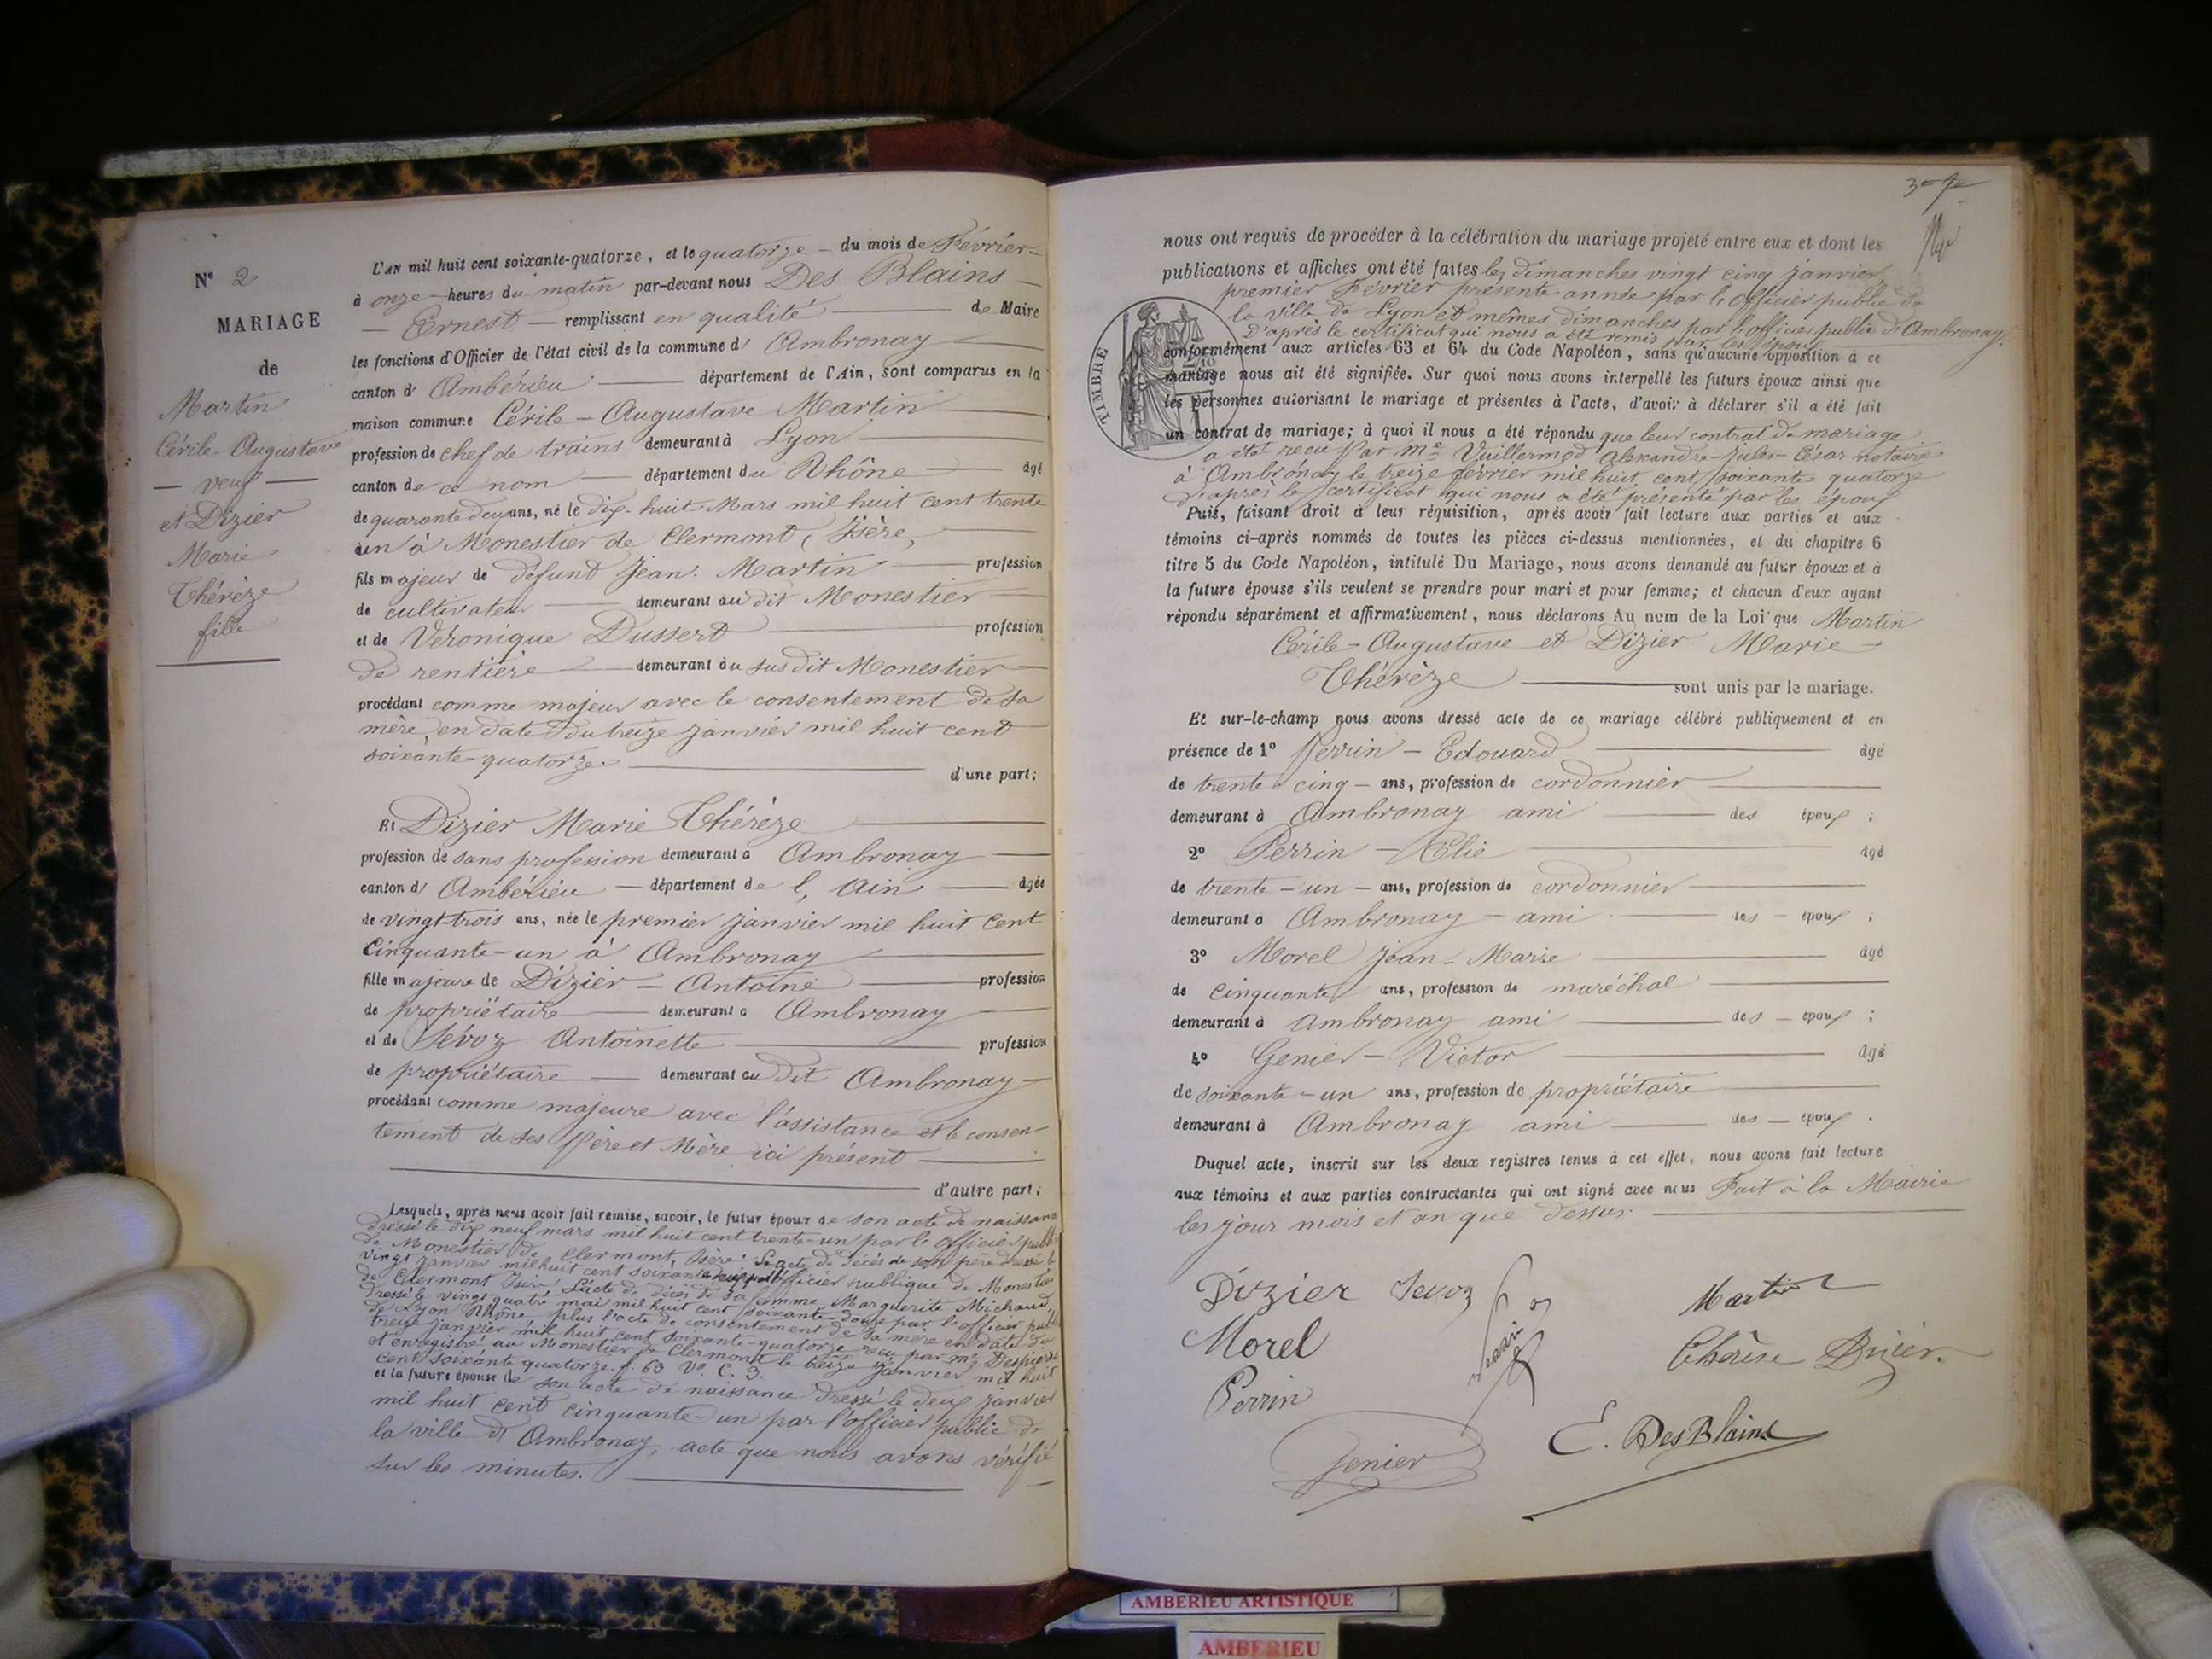 N° 2
MARIAGE
de
Martin
Cérile-Augustave
— veuf —
et Dizier
Marie
Thérèze
fille
L'AN mil huit cent soixante-quatorze, et le quatorze — du mois de Février —
à onze — heures du matin par-devant nous Des Blains —
— Ernest — remplissant en qualité — de Maire
les fonctions d'Officier de l'état civil de la commune d' Ambronay
canton d' Ambérieu — département de l'Ain, sont comparus en la
maison commune Cérile — Augustave Martin
profession de chef de trains demeurant à Lyon —
canton de ce nom — département du Rhône — âgé
de quarante deux ans, né le dix-huit Mars mil huit cent trente
un à Monestier de Clermont, Isère,
fils majeur de défund Jean. Martin — profession
de cultivateur — demeurant au dit Monestier
et de Véronique Dussert — profession
de rentière — demeurant au sus dit Monestier —
procédant comme majeur avec le consentement de sa
mère, en date du treize janvier mil huit cent
soixante-quatorze. — d'une part;
Et Dizier Marie Thérèze
profession de sans profession demeurant à Ambronay —
canton d' Ambérieu — département de l, Ain — âgée
de vingt-trois ans, née le premier janvier mil huit cent
Cinquante-un à Ambronay
fille majeure de Dizier — Antoine — profession
de propriétaire — demeurant à Ambronay
et de Sévoz Antoinette — profession
de propriétaire — demeurant au dit Ambronay —
procédant comme majeure avec l'assistance et le consen-
tement de ses Père et Mère ici présent
d'autre part;
Lesquels, après nous avoir fait remise, savoir, le futur époux de son acte de naissance
dressé le dix neuf mars mil huit cent trente-un par le officier public
de Monestier de Clermont, Isère. L'acte de décès de son père dressé le
vingt janvier mil huit cent soixante officier publique de Monestier
de Clermont Isère L'acte de décès de sa femme Marguerite Michaud
dressé le vingt quatre mai mil huit cent soixante-douze par l'officier public
de Lyon Rhône, plus l'acte de consentement de sa mère en date du
treize janvier mil huit cent soixante-quatorze reçu par me Despierre
et enregistré au Monestier de Clermont le treize janvier mil huit
cent soixante quatorze. f. 63 Vo. C. 3.
et la future épouse de son acte de naissance dressé le deux janvier
mil huit cent cinquante-un par l'officier public de
la ville d' Ambronay, acte que nous avons vérifié
sur les minutes.
nous ont requis de procéder à la célébration du mariage projeté entre eux et dont les
publications et affiches ont été faites les dimanches vingt cinq janvier
premier Février présente année par l'officier public de
la ville de Lyon et mêmes dimanches par l'officier public d'Ambronay.
d'après le certificat qui nous a été remis par les époux
conformément aux articles 63 et 64 du Code Napoléon, sans qu'aucune opposition à ce
mariage nous ait été signifiée. Sur quoi nous avons interpellé les futurs époux ainsi que
les personnes autorisant le mariage et présentes à l'acte, d'avoir à déclarer s'il a été fait
un contrat de mariage; à quoi il nous a été répondu que leur contrat de mariage
a été reçu par me Vuillermod Alexandre-Jules-César notaire
à Ambronay le treize février mil huit cent soixante quatorze
d'après le certificat qui nous a été présenté par les époux
Puis, faisant droit à leur réquisition, après avoir fait lecture aux parties et aux
témoins ci-après nommés de toutes les pièces ci-dessus mentionnées, et du chapitre 6
titre 5 du Code Napoléon, intitulé Du Mariage, nous avons demandé au futur époux et à
la future épouse s'ils veulent se prendre pour mari et pour femme; et chacun d'eux ayant
répondu séparément et affirmativement, nous déclarons Au nom de la Loi que Martin
Cérile-Augustave et Dizier Marie —
Thérèze — sont unis par le mariage.
Et sur-le-champ nous avons dressé acte de ce mariage célébré publiquement et en
présence de 1° Perrin — Edouard — âgé
de trente cinq — ans, profession de cordonnier
demeurant à Ambronay ami — des époux ;
2° Perrin — Élie — âgé
de trente — un — ans, profession de cordonnier
demeurant à Ambronay — ami — des — époux ;
3° Morel Jean-Marie — âgé
de Cinquante ans, profession de maréchal
demeurant à Ambronay ami — des — époux ;
4° Genier — Victor — âgé
de soixante — un ans, profession de propriétaire
demeurant à Ambronay ami — des — époux .
Duquel acte, inscrit sur les deux registres tenus à cet effet, nous avons fait lecture
aux témoins et aux parties contractantes qui ont signé avec nous Fait à la Mairie
les jour mois et an que dessus.
TIMBRE
Dizier Sevoz Martin
Morel
Thérèse Dizier.
Perrin
E. DesBlains
Genier
AMBERIEU ARTISTIQUE
AMBERIEU